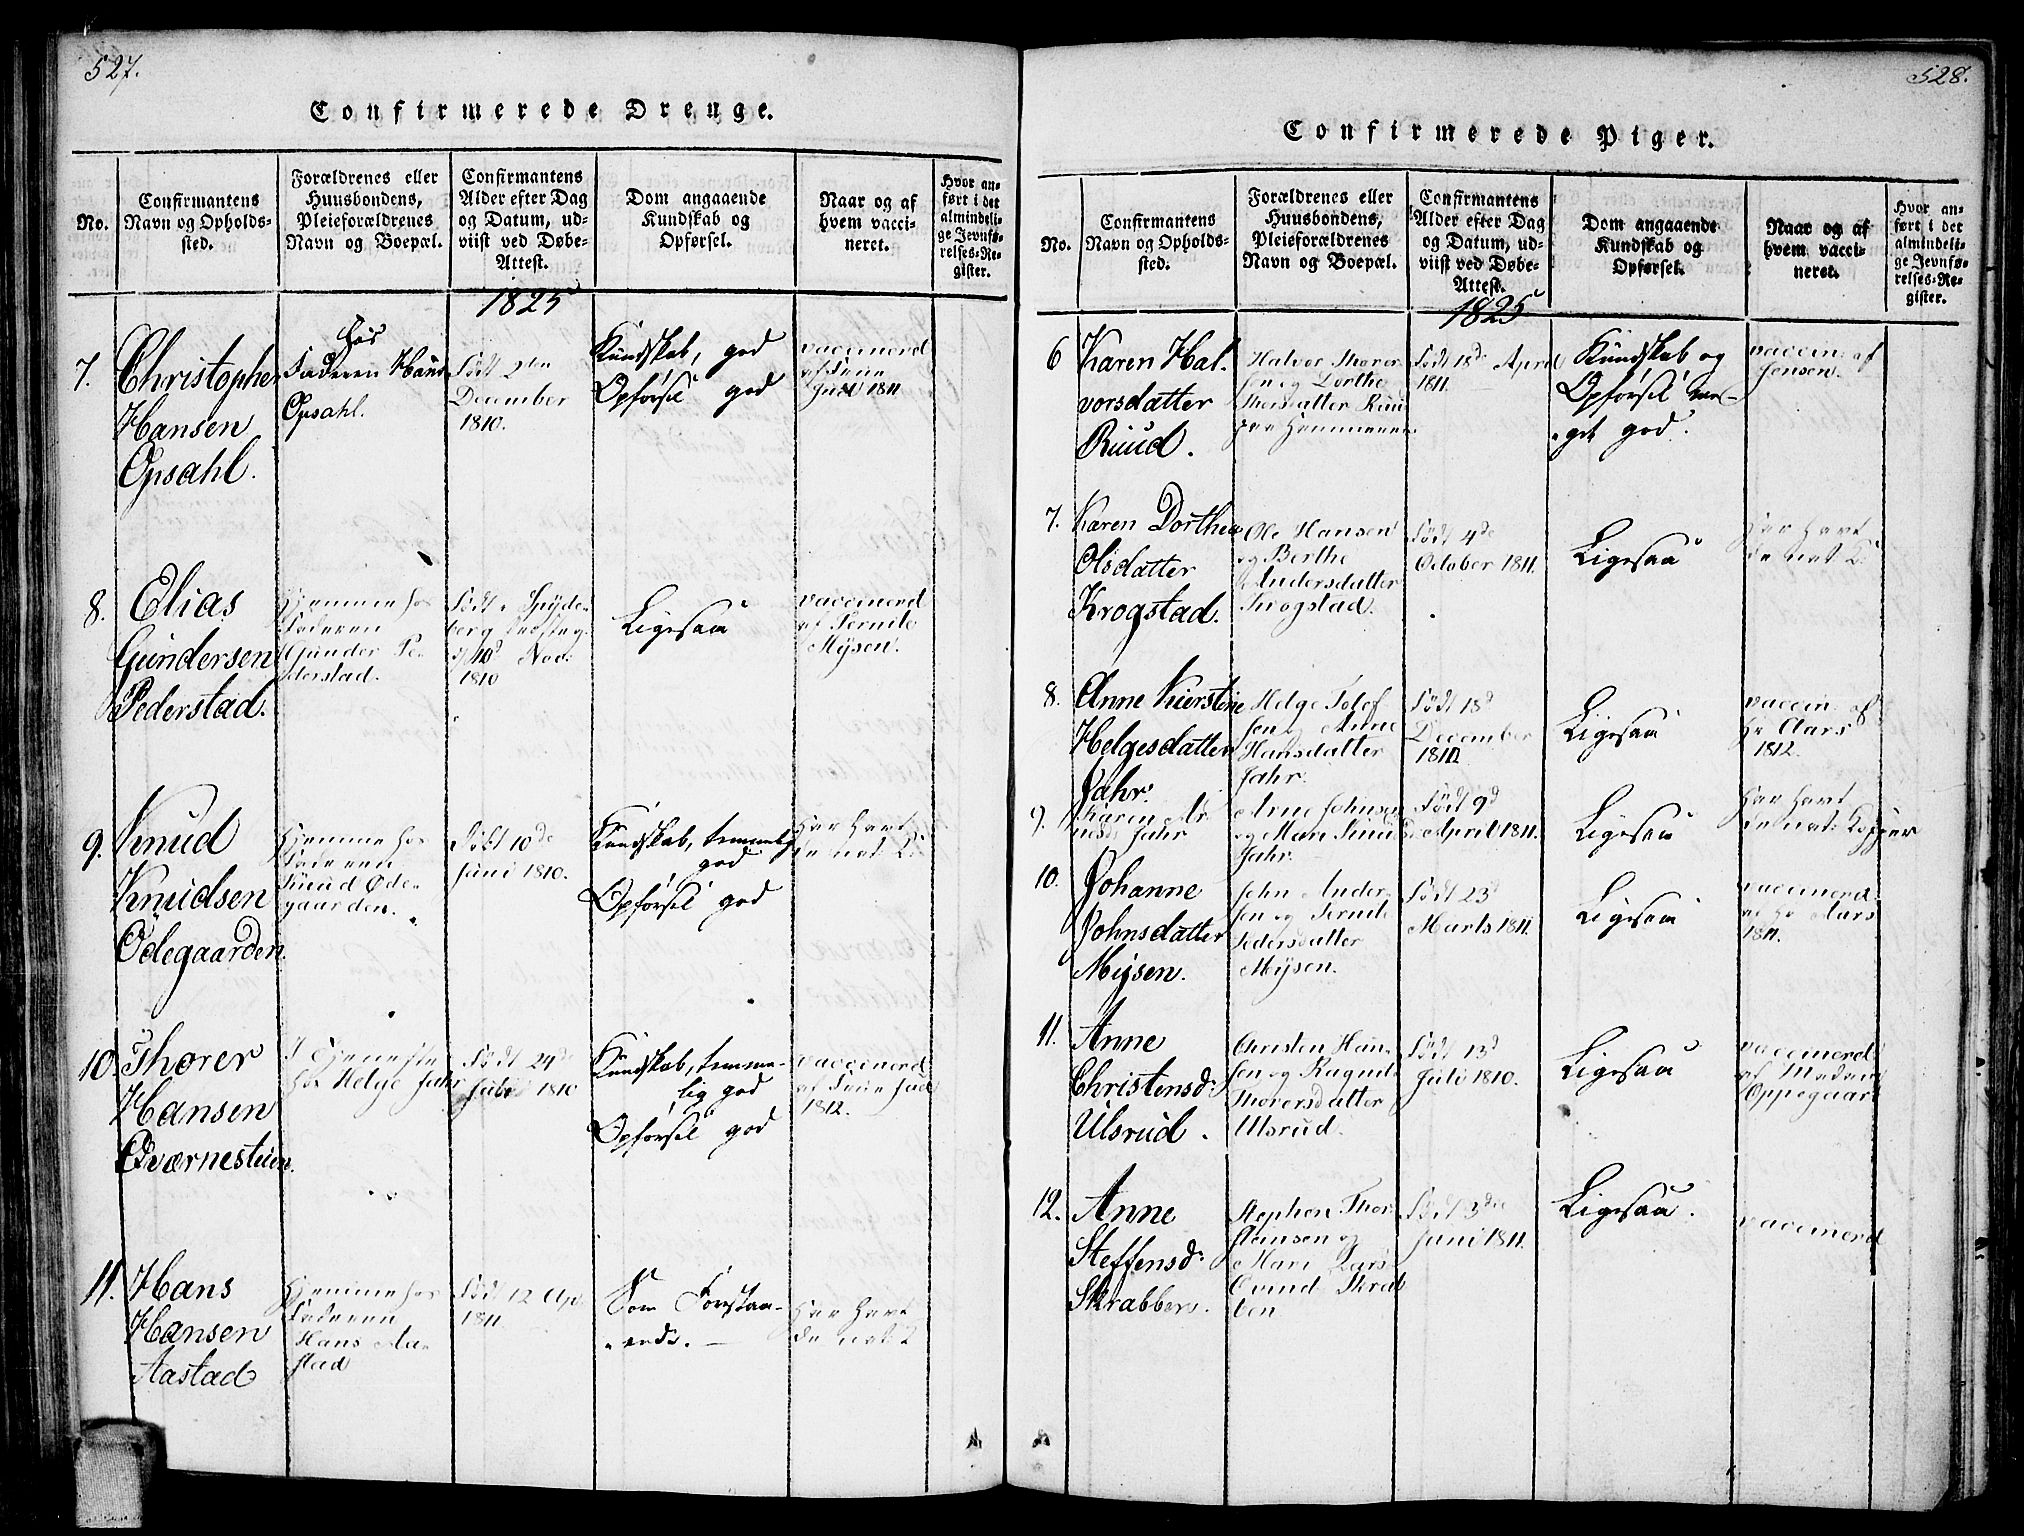 527.
Confirmerede Drenge.
No.
Confirmantens
Navn og Opholds-
sted.
Forældrenes eller
Huusbondens,
Pleieforældrenes
Navn og Boepæl.
Confirmantens
Alder efter Dag
og Datum, ud-
viist ved Døbe-
Attest.
Dom angaaende
Kundskab og
Opførsel.
Naar og af
hvem vacci-
neret.
Hvor an-
ført i det
almindeli-
ge Jevnfø-
relses-Re-
gister.
1825
7.
Christopher
Hansen
Opsahl.
hos
Faderen Hans
Opsahl.
Født 2den
December
1810.
Kundskab, god
Opførsel god
vaccinerd
1811
8.
Elias
Gundersen
Pederstad.
Hjemme hos
Faderen
Gunder Pe-
derstad.
Født i Spyde-
berg
10d Nov:
1810
Ligesaa
vaccinerd
af Pernile
Mÿsen.
9.
Knud
Knudsen
Ödegaarden.
Hjemme hos
Faderen
Knud Øde-
gaarden.
Født 10de
Juni 1810.
Kundskab, temmelig
god
Opførsel god
Har havt
de nat. K:
10.
Thorer
Hansen
Qværnesteien.
I Tjeneste
hos Helge Jahr
Født 24de
Juli 1810
Kundskab, temme-
lig god
Opførsel god
vaccinerd
1812.
11.
Hans
Hansen
Aastad
Hjemme hos
Faderen
Hans Aa-
stad
Født 12 Ap.
1811.
Som Forestaa-
ende.
Har havt
de nat K
528.
Confirmerede Piger.
No.
Confirmantens
Navn og Opholds-
sted.
Forældrenes eller
Huusbondens,
Pleieforældrenes
Navn og Boepæl.
Confirmantens
Alder efter Dag
og Datum, ud-
viist ved Døbe-
Attest.
Dom angaaende
Kundskab og
Opførsel.
Naar og af
hvem vacci-
neret.
Hvor an-
ført i det
almindeli-
ge Jevnfø-
relses-Re-
gister.
1825
6
Karen Hal-
vorsdatter
Ruud.
Halvor Thorer-
sen og Dorthe
Thorsdatter Ruud
Født 18de April
1811.
Kundskab og
Opførsel me-
get god.
vaccin. af
Jensen.
7.
Karen Dorthea
Olsdatter
Krogstad.
Ole Hansen
og Berthe
Andersdatter
Krogstad.
Født 4de
October 1811.
Ligesaa
Har havt
de nat K:
8.
Anne Kierstine
Helgesdatter
Jahr.
Helge Tolof-
sen og Anne
Hansdatter
Jahr.
Født 18d
December
1810
Ligesaa
vaccin. af
Hr Aars
1812.
9.
Karen Ar-
nesd: Jahr
Arne Johnsen
og Mari Knuds
Jahr.
Født 9d
April 1811.
Ligesaa
Har havt
de nat: Kopper
10.
Johanne
Johnsdatter
Mijsen.
John Ander-
sen og Pernile
Pedersdatter
Mÿsen.
Født 23d
Marts 1811.
Ligesaa
vaccinerd
af Hr Aars
1811.
11.
Anne
Christensd:
Ulsrud.
Christen Han-
sen og Ragnil
Thorersdatter
Ulsrud.
Født 13d
Juli 1810.
Ligesaa
vaccinerd
af Madam
Oppegaar
12.
Anne
Steffensd:
Skrabben.
Stephen Thor-
stensen og
Mari Lars-
Skrab-
ben
Født 3die
Juni 1811.
Ligesaa.
vaccinerd